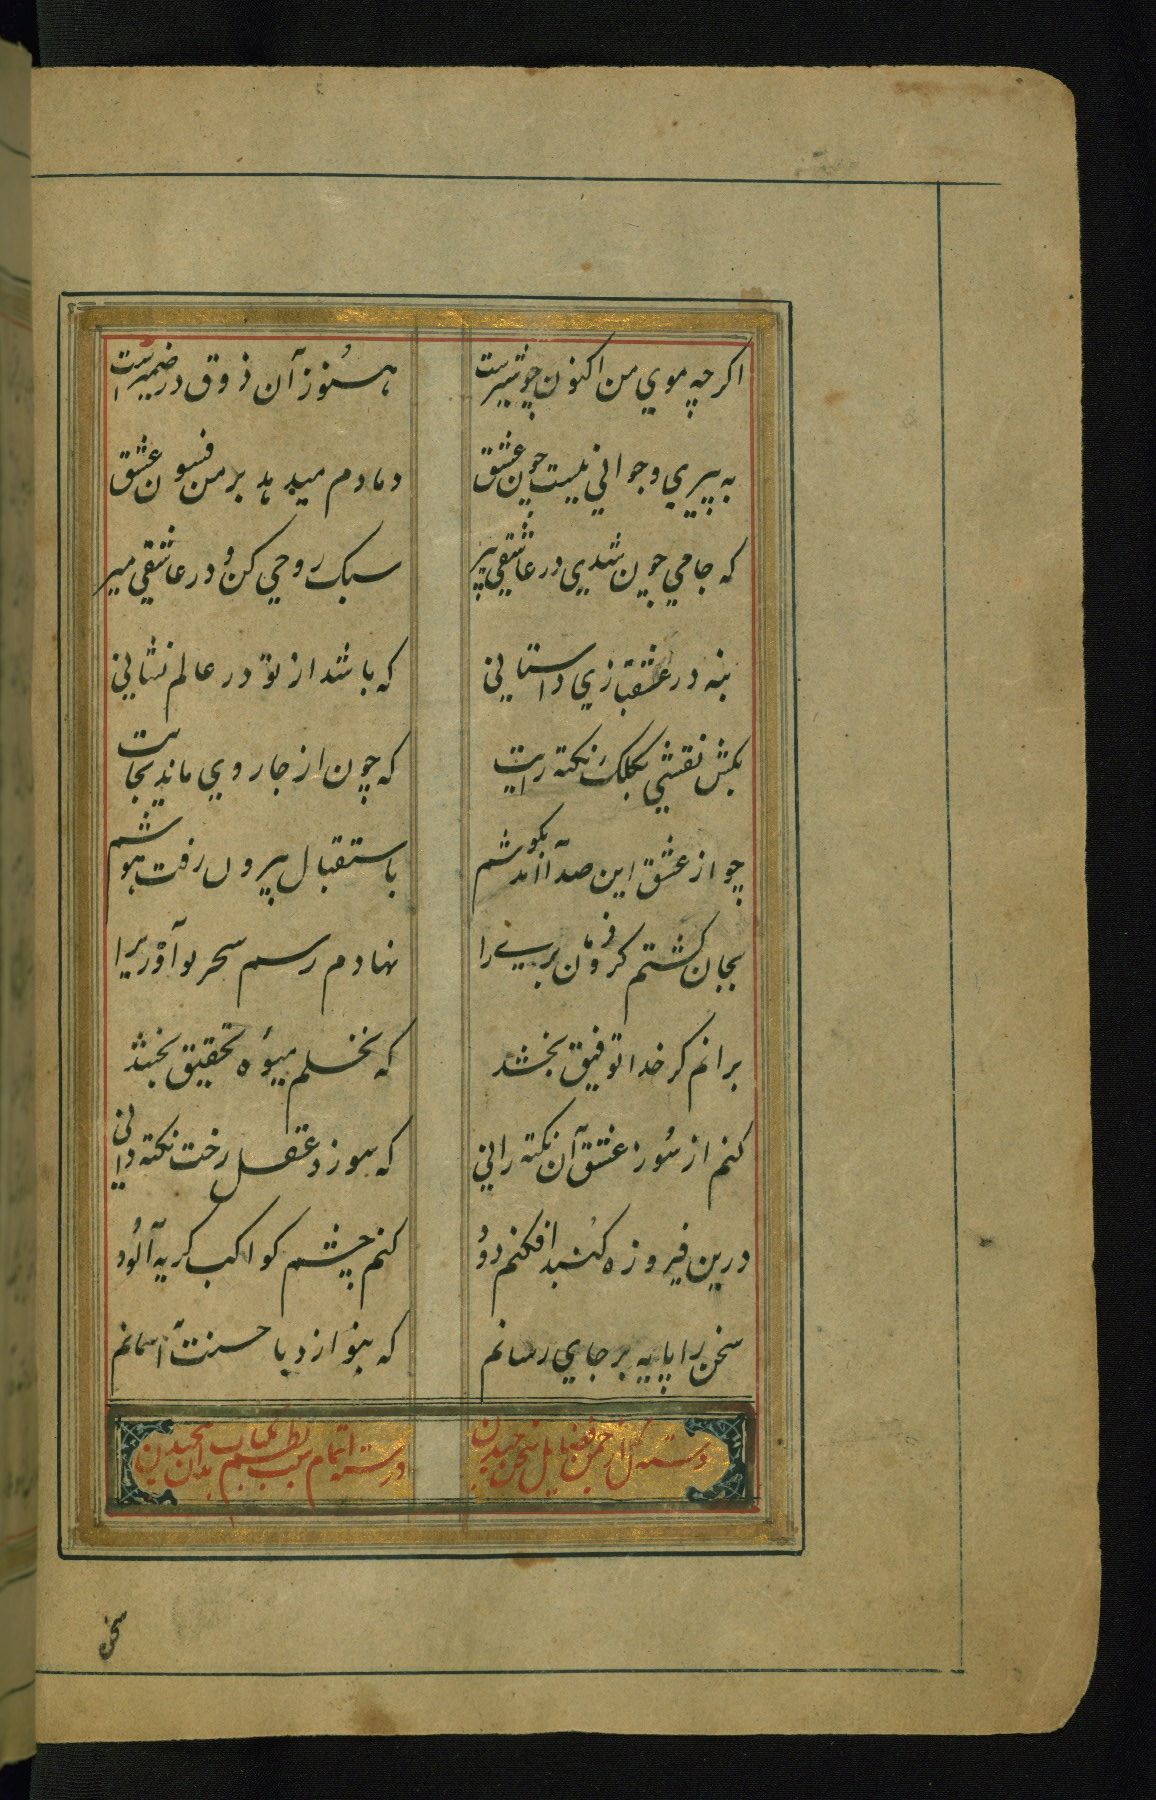 اگرچه موی من اکنون چو شیرست هنوز آن ذوق در ضمیرست
به پیری و جوانی نیست چون عشق دمادم میدهد بر من فسون عشق
که جامی چون شدی در عاشقی پیر سبک روحی کن و در عاشقی میر
بنه در عشقبازی داستانی که باشد از تو در عالم نشانی
بکش نقشی بکلک نکته زایت که چون از جا روی ماند بجایت
چو از عشق این صدا آمد بگوشم باستقبال بیرون رفت هوشم
بجان گشتم گرو فرمان بریرا نهادم رسم سحر نوآوریرا
برانم گر خدا توفیق بخشد که نخلم میوه تحقیق بخشد
کنم از سوز عشق آن نکته رانی که سوزد عقل رخت نکته دانی
درین فیروزه گنبد افکنم دود کنم چشم کواکب گریه آلود
سخن را پایه بر جایی رسانم که بنوازد باحسنت آسمانم
دسته گل از چمن فضایل سخن چیدن و رشته اتمام سبب نظم کتاب بدان پیچیدن
سخن